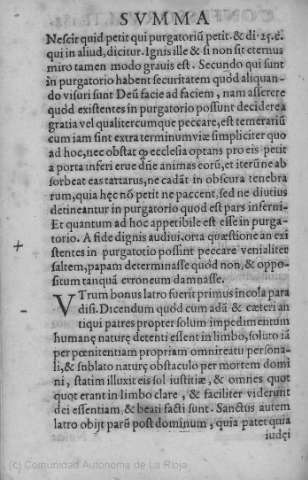 SVMMA
Nescit quid petit qui purgatoriũ petit. & di. 25. c.
qui in aliud, dicitur. Ignis ille & si non sit eternus
miro tamen modo grauis est. Secundo qui sunt
in purgatorio habent securitatem quòd aliquan-
do visuri sunt Deũ facie ad faciem, nam asserere
quòd existentes in purgatorio possunt decidere a
gratia vel qualitercumque peccare, est temerariũ
cum iam sint extra terminum viæ simpliciter quo
ad hoc, nec obstat q ecclesia optans pro eis petit
a porta inferi erue dñe animas eorũ, et iterũ ne ab
sorbeat eas tartarus, ne cadãt in obscura tenebra
rum, quia hęc nõ petit ne peccent, sed ne diutius
detineantur in purgatorio quod est pars inferni.
Et quantum ad hoc appetibile est esse in purga-
torio. A fide dignis audiui, orta quæstione an exi
stentes in purgatorio possint peccare venialiter
saltem, papam determinasse quòd non, & oppo-
situm tanquã erroneum damnasse.
VTrum bonus latro fuerit primus incola para
disi. Dicendum quòd cum adã & cæteri an
tiqui patres propter solum impedimentum
humanę naturę detenti essent in limbo, soluto iã
per pœnitentiam propriam omni reatu persona-
li, & soluto naturę obstaculo per mortem domi
ni, statim illuxit eis sol iustitiæ, & omnes quot
quot erant in limbo clare, & faciliter viderunt
dei essentiam & beati facti sunt. Sanctus autem
latro obijt parũ post dominum, quia patet quia
iudęi
(c) Comunidad Autonoma de La Rioja